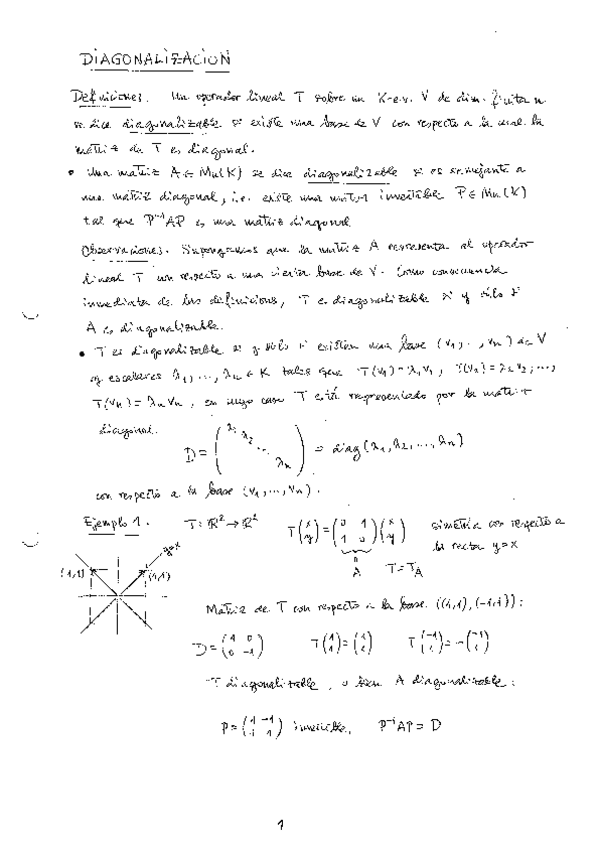 DIAGONALIZACION
Definiciones. Un operador lineal T sobre un K-e.v. V de dim. finita n
se dice diagonalizable si existe una base de V con respecto a la cual la
matriz de T es diagonal.
• Una matriz A ∈ Mn(K) se dice diagonalizable si es semejante a
una matriz diagonal, i.e. existe una matriz invertible P ∈ Mn(K)
tal que P⁻¹AP es una matriz diagonal
Observaciones. Supongamos que la matriz A representa al operador
lineal T con respecto a una cierta base de V. Como consecuencia
inmediata de las definiciones, T es diagonalizable si y sólo si
A es diagonalizable.
• T es diagonalizable si y sólo si existen una base (v1, ..., vn) de V
y escalares λ1, ..., λn ∈ K tales que T(v1) = λ1v1, T(v2) = λ2v2, ...,
T(vn) = λnvn, en cuyo caso T está representado por la matriz
diagonal
D = (λ1 λ2 ... λn) = diag(λ1, λ2, ..., λn)
con respecto a la base (v1, ..., vn).
Ejemplo 1. T: ℝ² → ℝ² T(x y) = (0 1 1 0)(x y) simetría con respecto a
la recta y=x
A T = T_A
y=x
(-1,1) (1,1)
Matriz de T con respecto a la base ((1,1), (-1,1)):
D = (1 0 0 -1) T(1 1) = (1 1) T(-1 1) = -(-1 1)
T diagonalizable, o bien A diagonalizable:
P = (1 -1 1 1) invertible, P⁻¹AP = D
1